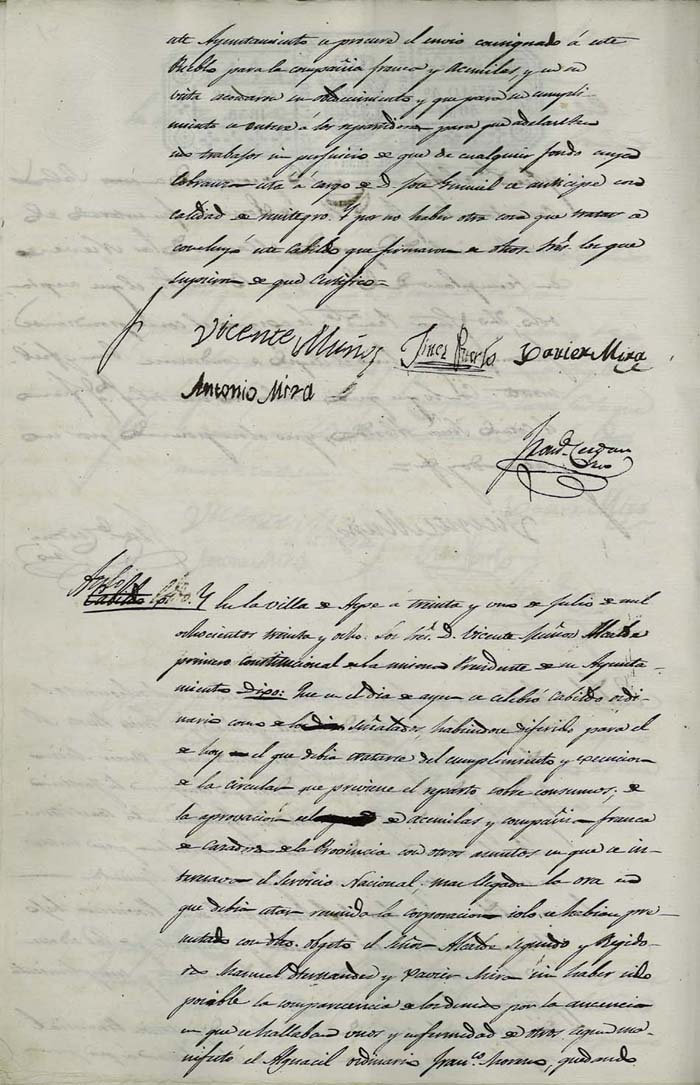 este Ayuntamiento se procure el envio consignado á este
Pueblo para la compañia franca y Acemilas, y en su
vista acordaron su obedecimiento y que para su cumpli
miento se entere á los repartidores para que adelanten
sus trabajos sin perjuicio de que de cualquier fondo cuya
cobranza está á cargo de D. Jose se anticipe con
calidad de reintegro. Y por no haber otra cosa que tratar se
concluyó este cabildo que firmaron de dhos. Sres. los que
supieron de que certifico=
Vicente Muños Jines Puerto Xavier Mira
Antonio Mira
Cabildo
En la villa de Aspe á treinta y uno de Julio de mil
ochocientos treinta y ocho. Los Sres. D. Vicente Muños Alcalde
primero constitucional de la misma Presidente de su Ayunta-
miento Dijo: Que en el dia de ayer se celebró cabildo ordi-
nario como de los señalados, habiendose diferido para el
de hoy el que debia tratarse del cumplimiento y execucion
de la circular que previene el reparto sobre consumos, de
la aprovacion de acemilas y compañia franca
de cazadores de la Provincia con otros asuntos en que se in-
teresava el Servicio Nacional; mas llegada la ora en
que debia estar reunida la corporacion solo se habian pre-
sentado con dho. objeto el Señor Alcalde segundo y Regido-
res Manuel Hernandez y Xavier Mira sin haber sido
posible la comparecencia de los demas por la ausencia
en que se hallaban unos y enfermedad de otros segun ma-
nifestó el Alguacil ordinario Franco. Moreno, quedando